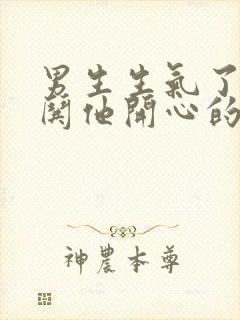 男生生氣了
鬨他開心的
神農本尊